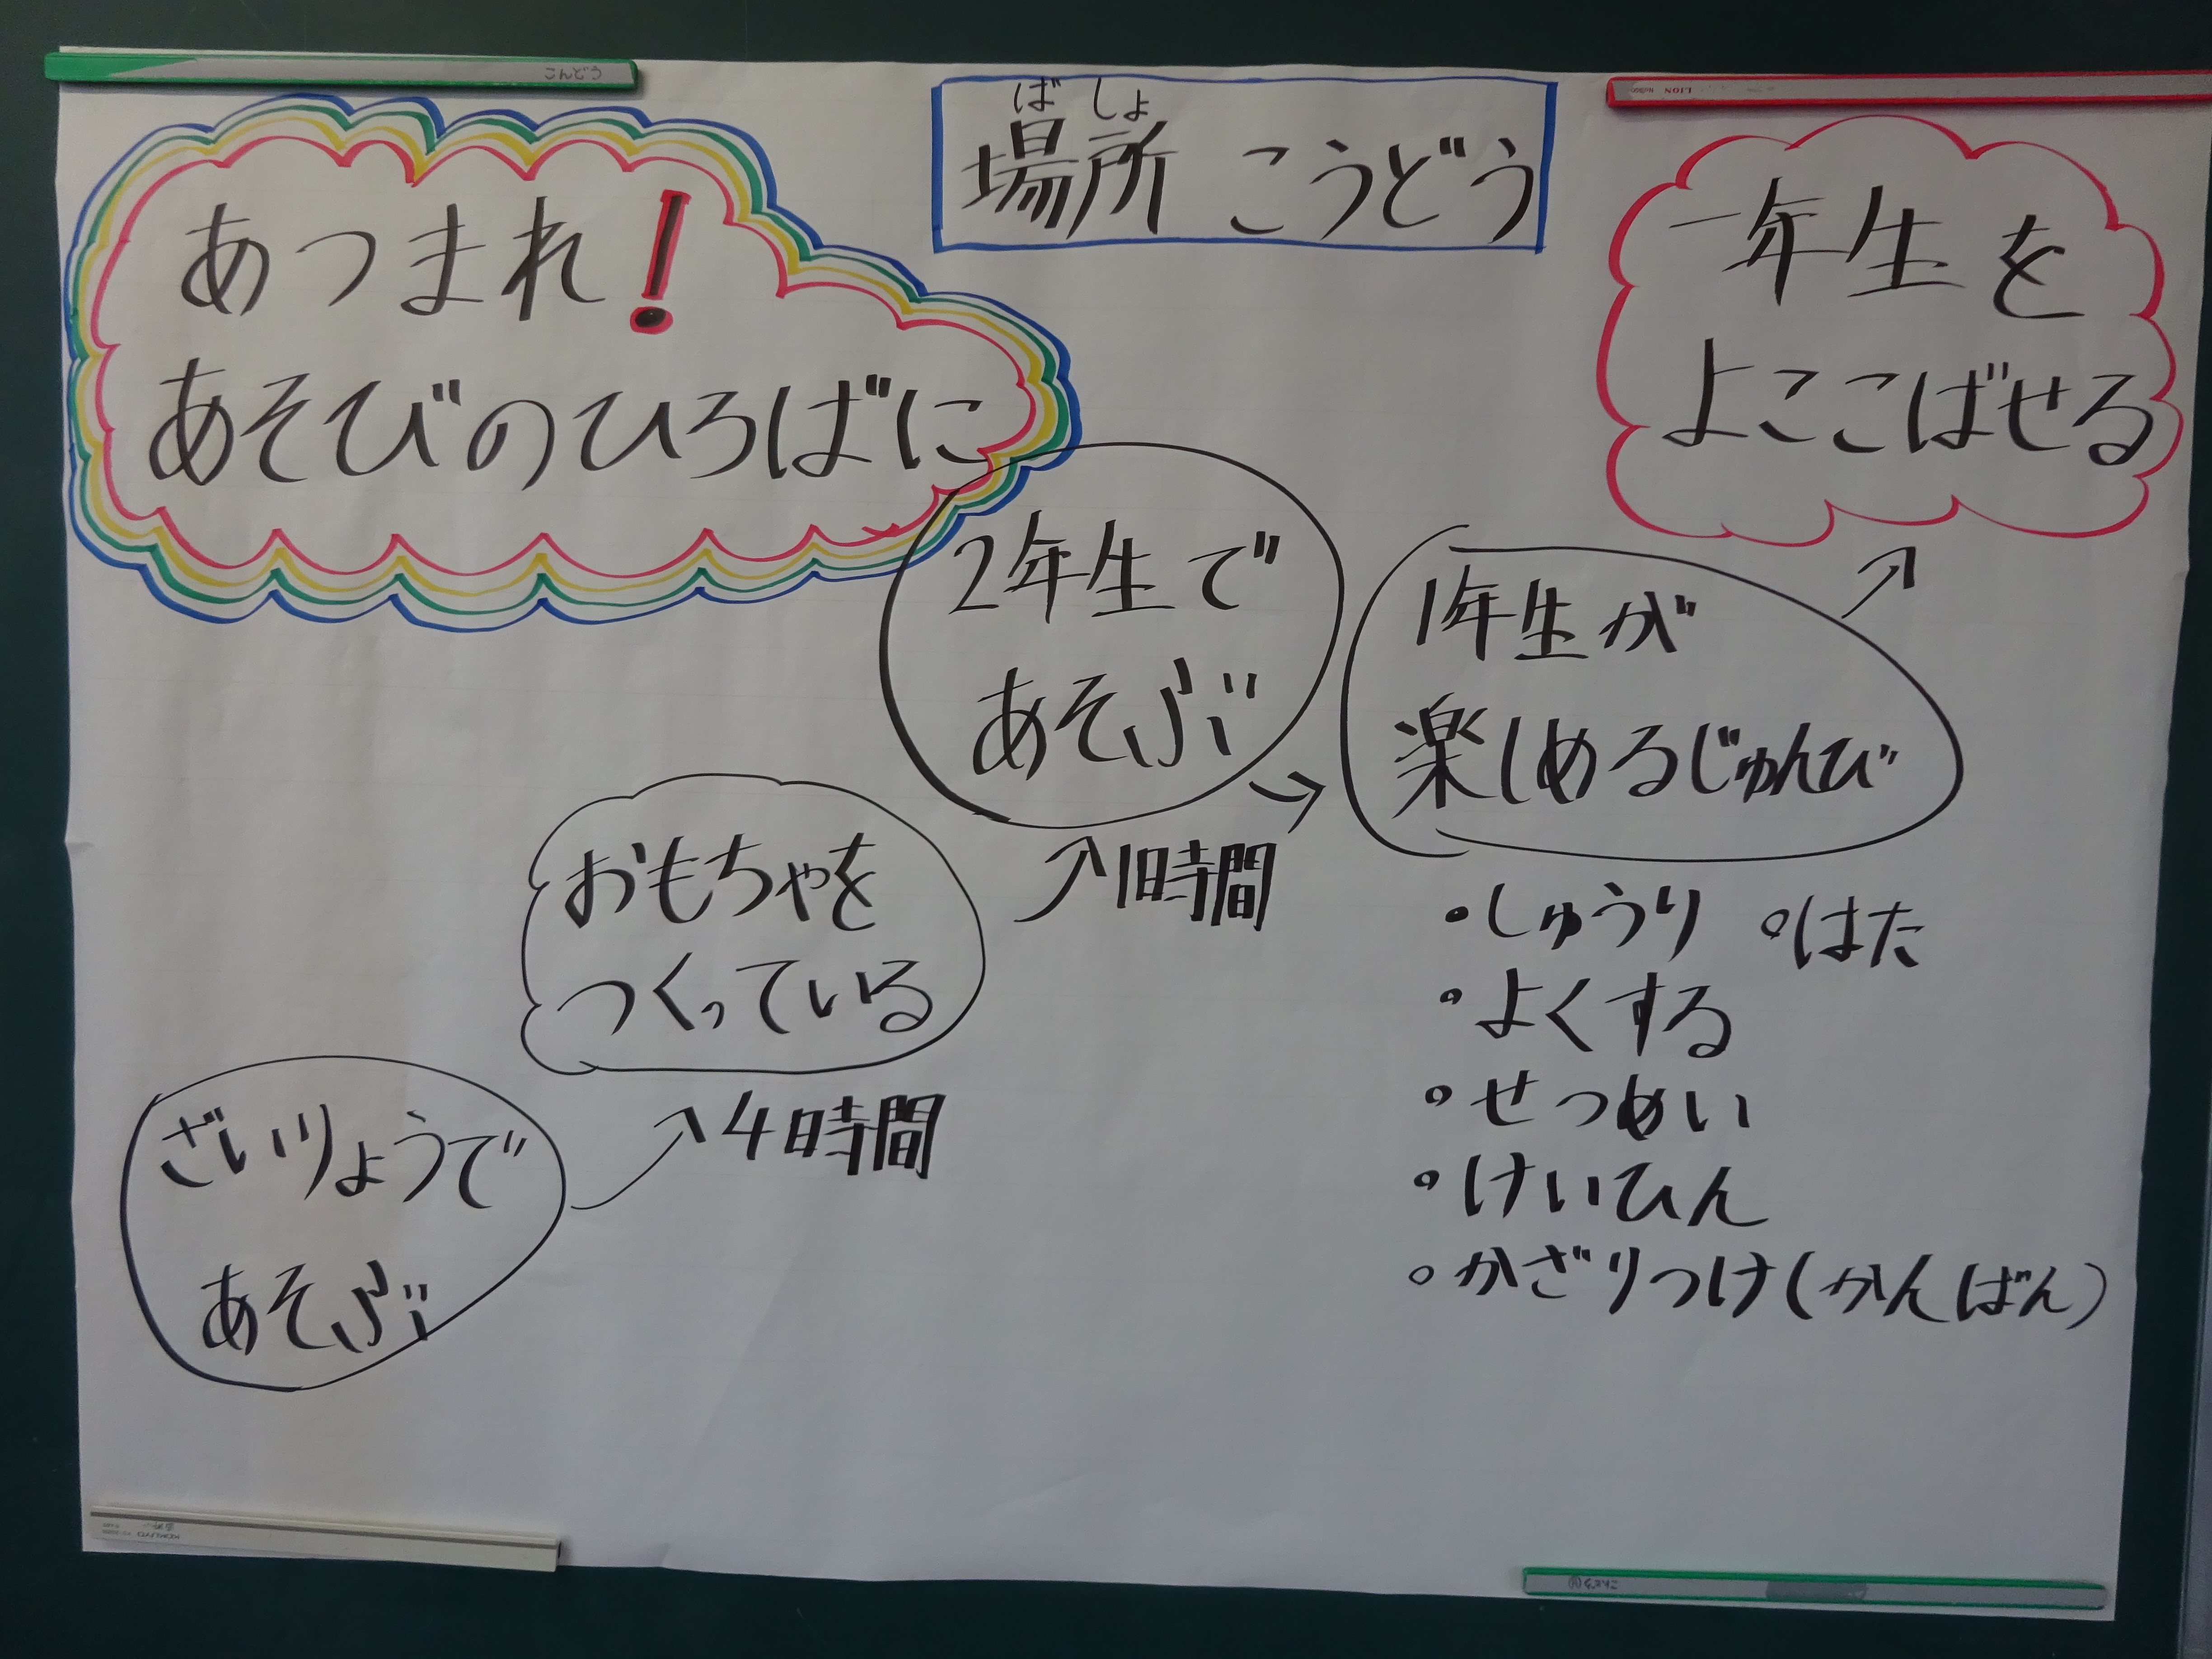 ばしょ
場所 こうどう
あつまれ!
あそびのひろばに
一年生を
よここばせる
2年生で
あそぶ
1年生が
楽しめるじゅんび
1時間
・しゅうり ・はた
・よくする
・せつめい
・けいひん
・かざりつけ(かんばん)
おもちゃを
つくっている
4時間
ざいりょうで
あそぶ
LION
KOKUYO